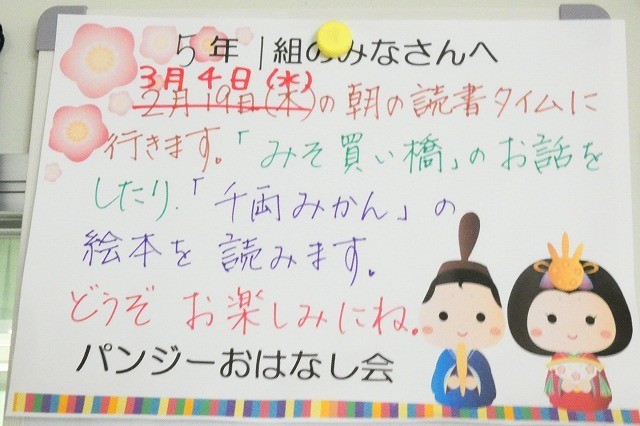 5年1組のみなさんへ
3月4日(水)
2月19日(木)の朝の読書タイムに
行きます。「みそ買い橋」のお話を
したり、「千両みかん」の
絵本を読みます。
どうぞ お楽しみにね。
パンジーおはなし会